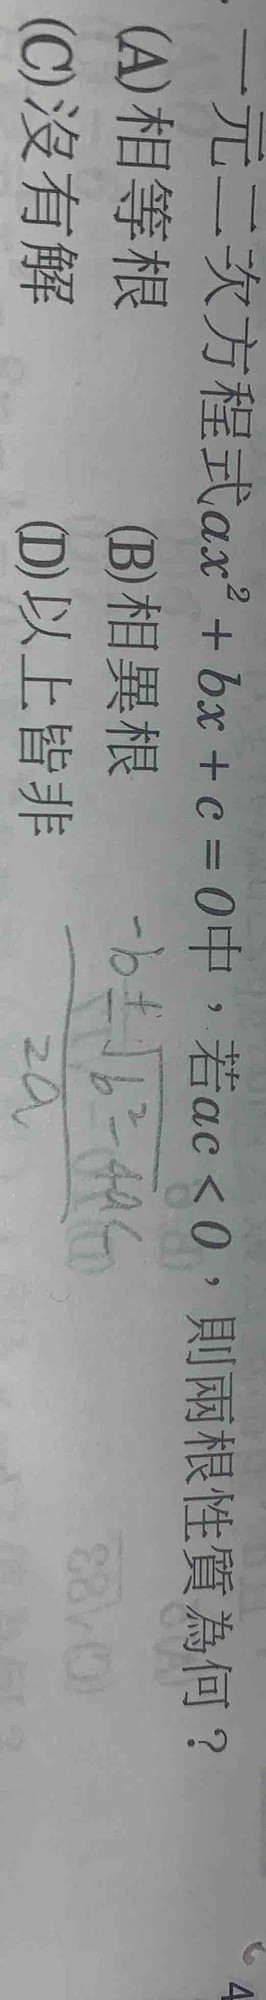 一元二次方程式ax² + bx + c = 0中，若ac < 0，則兩根性質為何？
(A)相等根 (B)相異根
(C)沒有解 (D)以上皆非
-b ± √b² - 4ac
2a
4